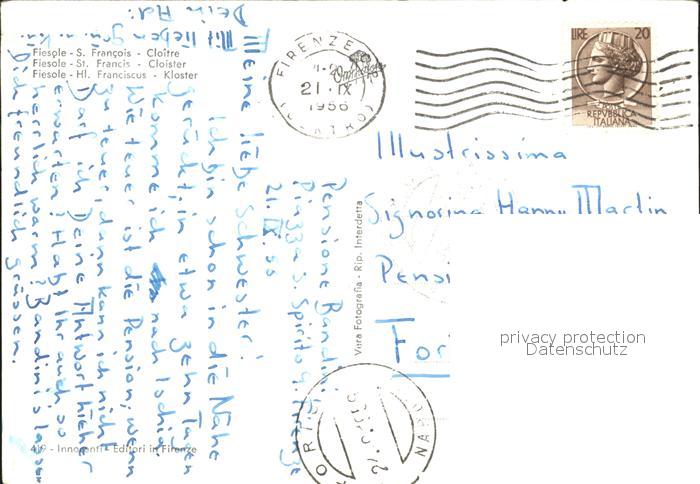 Fiesole - S. François - Cloître
Fiesole - St. Francis - Cloister
Fiesole - Hl. Franciscus - Kloster
FIRENZE
21. IX
1956
LIRE 20
REPVBBLICA
ITALIANA
Illustrissima
Signorina Hanny Martin
Pensi
For
privacy protection
Datenschutz
Vera Fotografia - Rip. Interdetta
Pensione Bandini
Piazza S. Spirito 9. Firenze
21. IX.
Meine liebe Schwester!
Ich bin schon in die Nähe
gerückt, in etwa zehn Tagen
komme ich nach Ischia.
Wie teuer ist die Pension, wenn
zu teuer, dann kann ich nicht
Darf ich Deine Antwort hieher
erwarten? Habt ihr auch so
herrlich warm? Bandini's lassen
Dich freundlich grüssen.
Mit lieben
Dein
419 - Innocenti - Editori in Firenze